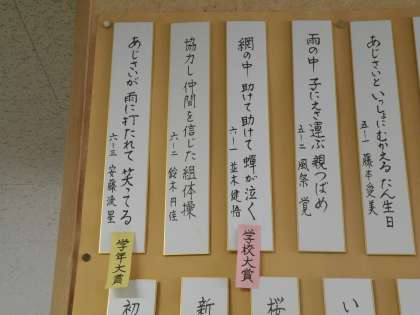 あじさいと いっしょにむかえる たん生日
五ー一 藤本愛美
雨の中 子にえさ運ぶ 親つばめ
五ー二 風祭 覚
網の中 助けて助けて 蟬が泣く
六ー一 並木健悟
学校大賞
協力し 仲間を信じた 組体操
六ー二 鈴木円佳
あじさいが 雨に打たれて 笑ってる
六ー三 安藤流星
学年大賞
い
桜
新
初